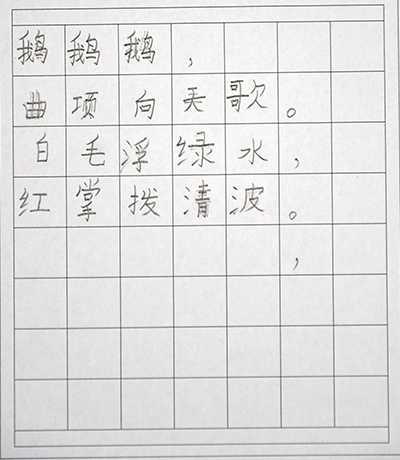 鹅鹅鹅，
曲项向天歌。
白毛浮绿水，
红掌拨清波。
，